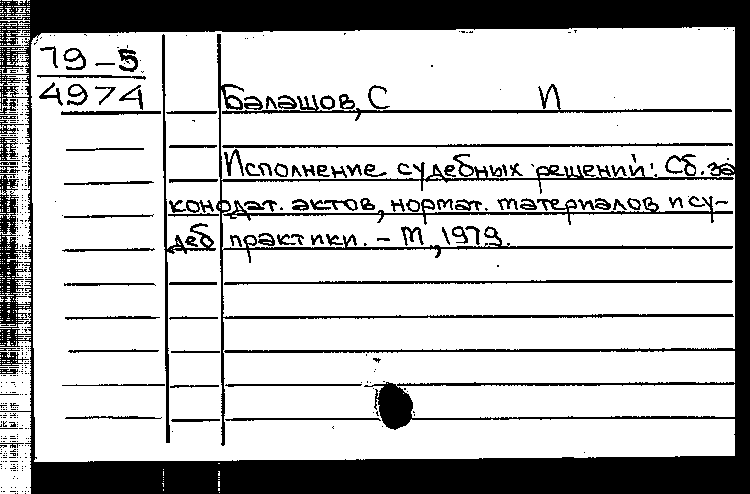 79-5
4974
Балашов, С И
Исполнение судебных решений: Сб. за
конодат. актов, нормат. материалов и су-
деб практики. - М., 1979.